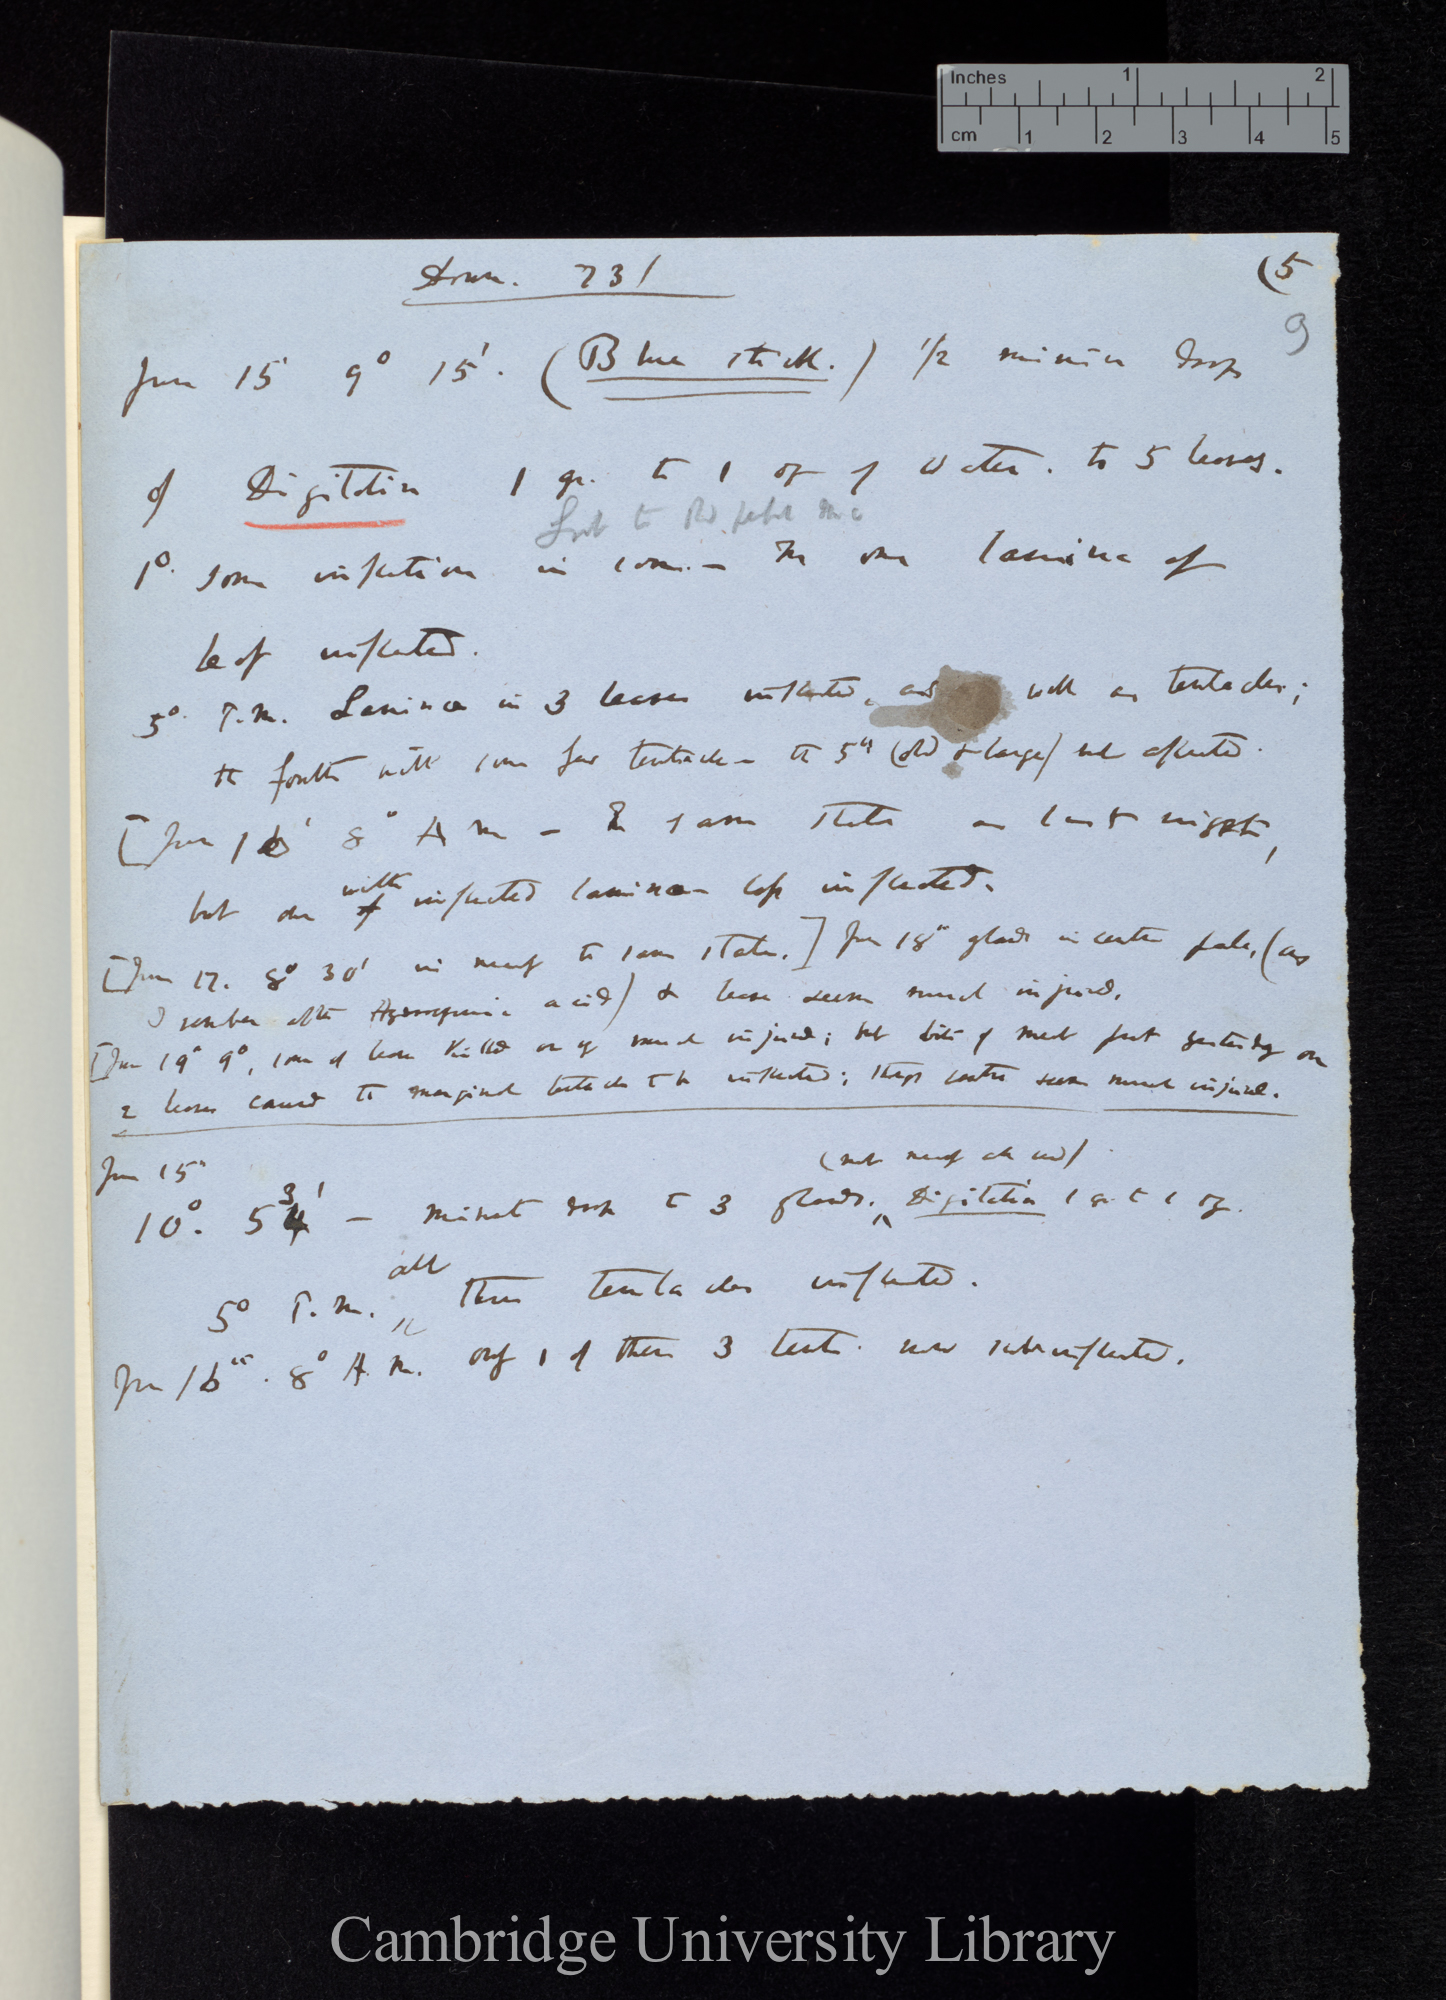 Inches 1 2
cm 1 2 3 4 5
Dros. 731 (5
9
June 15 9° 15'. (Blue stick.) 1/2 minim drops
of Digitalin 1 gr. to 1 oz of Water. to 5 leaves.
to old
1°. some inflection in some. — In one lamina of
leaf inflected.
5° P.M. Lamina in 3 leaves inflected, as well as tentacles;
the fourth with some few tentacles — the 5th (old & large) not affected.
[June 16' 8° A m — In same state as last night,
with
but one of inflected laminae less inflected.
[June 17. 8° 30' in nearly the same state.] June 18th glands in centre pale, (as
I remember after Hydrocyanic acid) & leaves seem much injured.
[June 19th 9°, some of leaves killed or of much injured; but bits of meat put yesterday on
2 leaves caused the marginal tentacles to be inflected; though centre seem much injured.
June 15th
(not nearly all used)
10°. 54 3' — minute drop to 3 glands. Digitalin 1 gr to 1 oz.
all
5° P.M. three tentacles inflected.
June 16th. 8° A.M. only 1 of these 3 tent. now sub-inflected.
Cambridge University Library